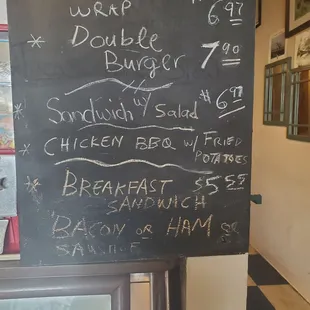 WRAP 6.97
Double
Burger 7.90
Sandwich w/ Salad $6.97
CHICKEN BBQ w/ FRIED
POTATOES
BREAKFAST $5.55
SANDWICH
BACON OR HAM OR